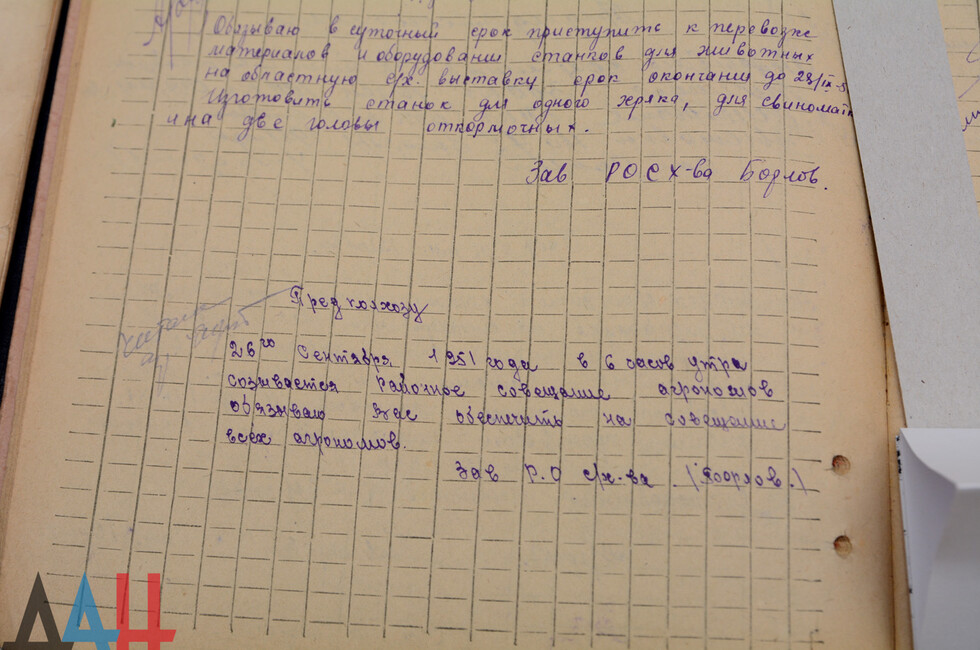 Обязываю в суточный срок приступить к перевозке
материалов и оборудовании станков для животных
на областную с/х. выставку срок окончании до 28/IX-5
Изготовить станок для одного хряка, для свиномат
и на две головы откормочных.
Зав РОСХ-ва Борлов.
Пред колхозу
26го Сентября 1951 года в 6 часов утра
созывается районное совещание агрономов
обязываю вас обеспечить на совещание
всех агрономов.
Зав Р.О с/х-ва (Борлов.)
ДАН